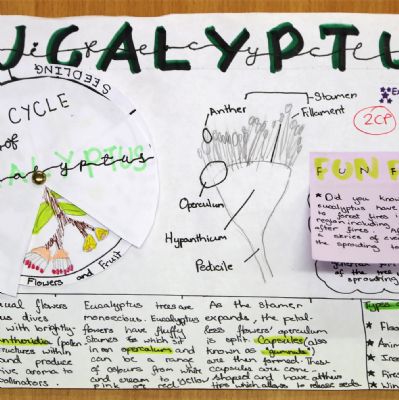 UCALYPTU
Life Cycle
SEEDLING
CYCLE
of
ALYPTUS
alyptus
Flowers and Fruit
Anther
Stamen
Fillament
Operculum
Hypanthium
Pedicile
2CP
FUN F
FUN F
★ Did you know
eucalyptus have
to forest fires i
region including
after fires. Af
a series of eve
the sprouting to
of the tr
sprouting
ual flowers
us dives
with brightly-
anthoridia (pollen
ructures within
and produce
ive aroma to
ollinators.
Eucalyptus trees are
monoecious. Eucalyptus
flowers have fluffy
Stamens which sit
in an operculum and
can be a range
of colours from white
and cream to
pink and red/yellow
As the Stamen
expands, the petal-
less flowers' operculum
is split. Capsules (also
known as 'gumnuts')
are formed. These
capsules are cone
shaped and have
tips which allows to release seeds.
Types
★ Flo
★ Anim
★ In
★ Fire
★ Win